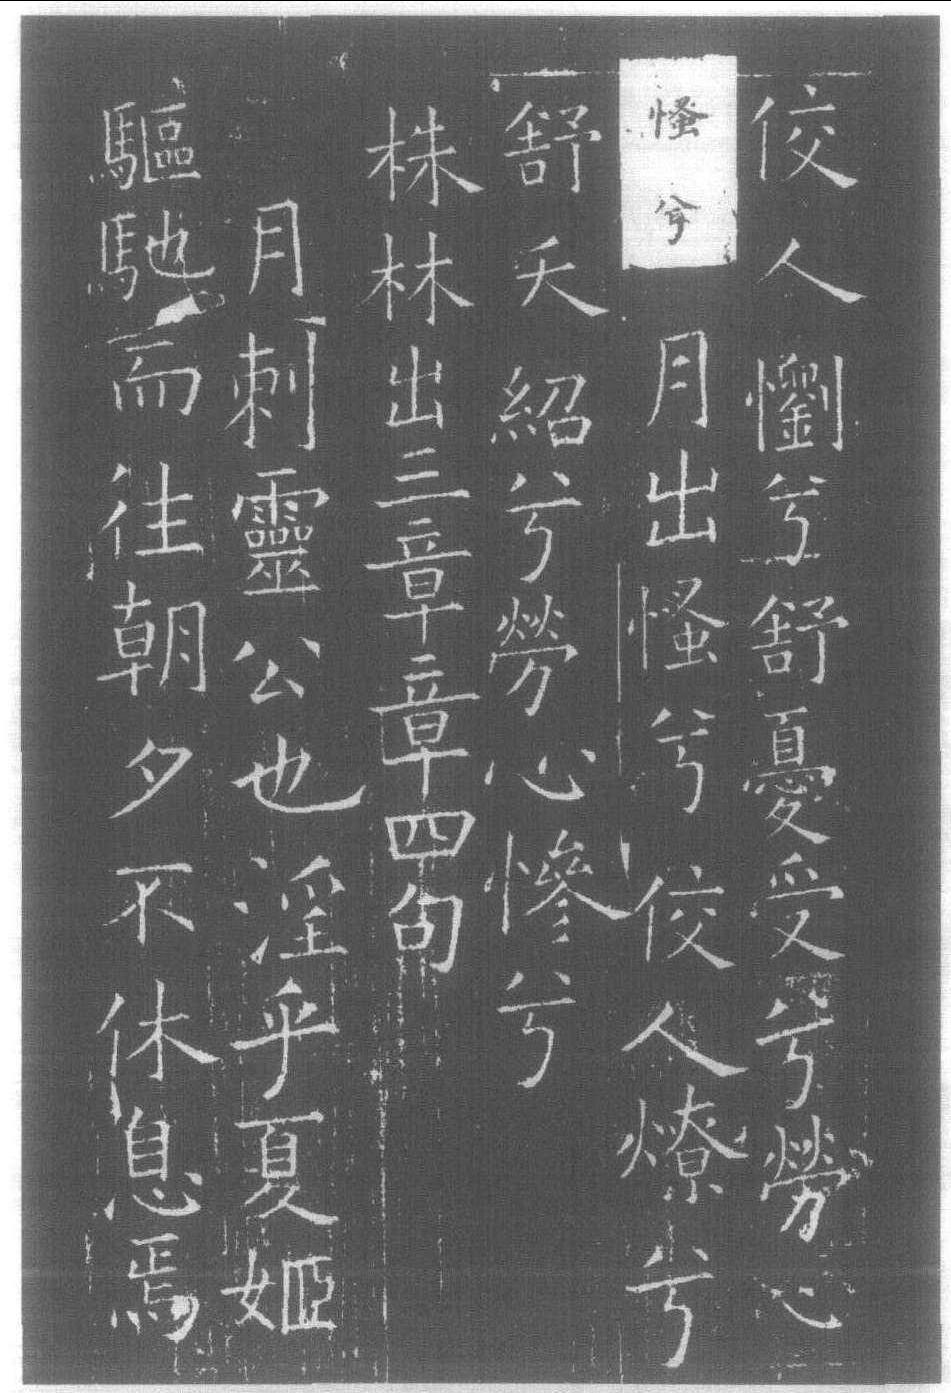 佼人懰兮舒憂受兮勞心
慅兮月出慅兮佼人燎兮
舒夭紹兮勞心慘兮
株林出三章章四句
月刺靈公也淫乎夏姬
驅馳而往朝夕不休息焉